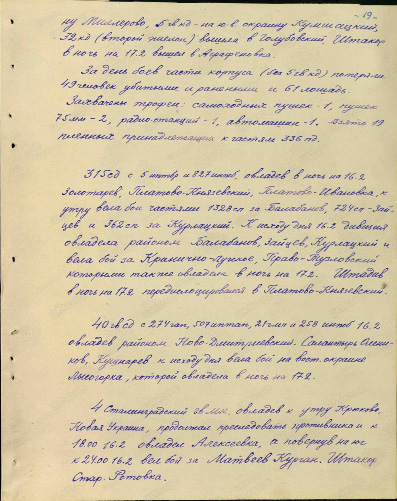 -19-
ну Миллерово, 5 гв кд - на ю.в окраину Кутейникский,
32 кд (второй эшелон) вышла в Голубовский. Штакор
в ночь на 17.2 вышел в Аграфеновка.
За день боев части корпуса (без 5 гв кд) потеряли
49 человек убитыми и ранеными и 61 лошадь.
Захвачены трофеи: самоходных пушек - 1, пушек
75 мм - 2, радиостанций - 1, автомашин - 1. Взято 19
пленных принадлежащих к частям 336 пд.
315 сд с 5 иптабр и 827 интб, овладев в ночь на 16.2
Золотарев, Платово-Князевский, Платово-Ивановка, к
утру вела бой частями 1328 сп за Балабанов, 724 сп - Зай-
цев и 362 сп за Курлацкий. К исходу дня 16.2 дивизия
овладела районом Балабанов, Зайцев, Курлацкий и
вела бой за Кранично-Лужское, Право-Тузловский
которыми также овладела в ночь на 17.2. Штадив
в ночь на 17.2 передислоцировался в Платово-Князевский.
40 гв сд с 274 гап, 507 иптап, 21 гмп и 258 интб 16.2
овладев районом Ново-Дмитриевский, Каплунов,
Кушнарев к исходу дня вела бой на вост. окраине
Лысогорка, которой овладела в ночь на 17.2.
4 Сталинградский гв мк, овладев к утру Крюково,
Новая Украина, продолжал преследовать противника и к
18.00 16.2 овладел Алексеевка, а повернув на юг
к 24.00 16.2 вел бой за Матвеев Курган. Штакор
Стар. Ротовка.